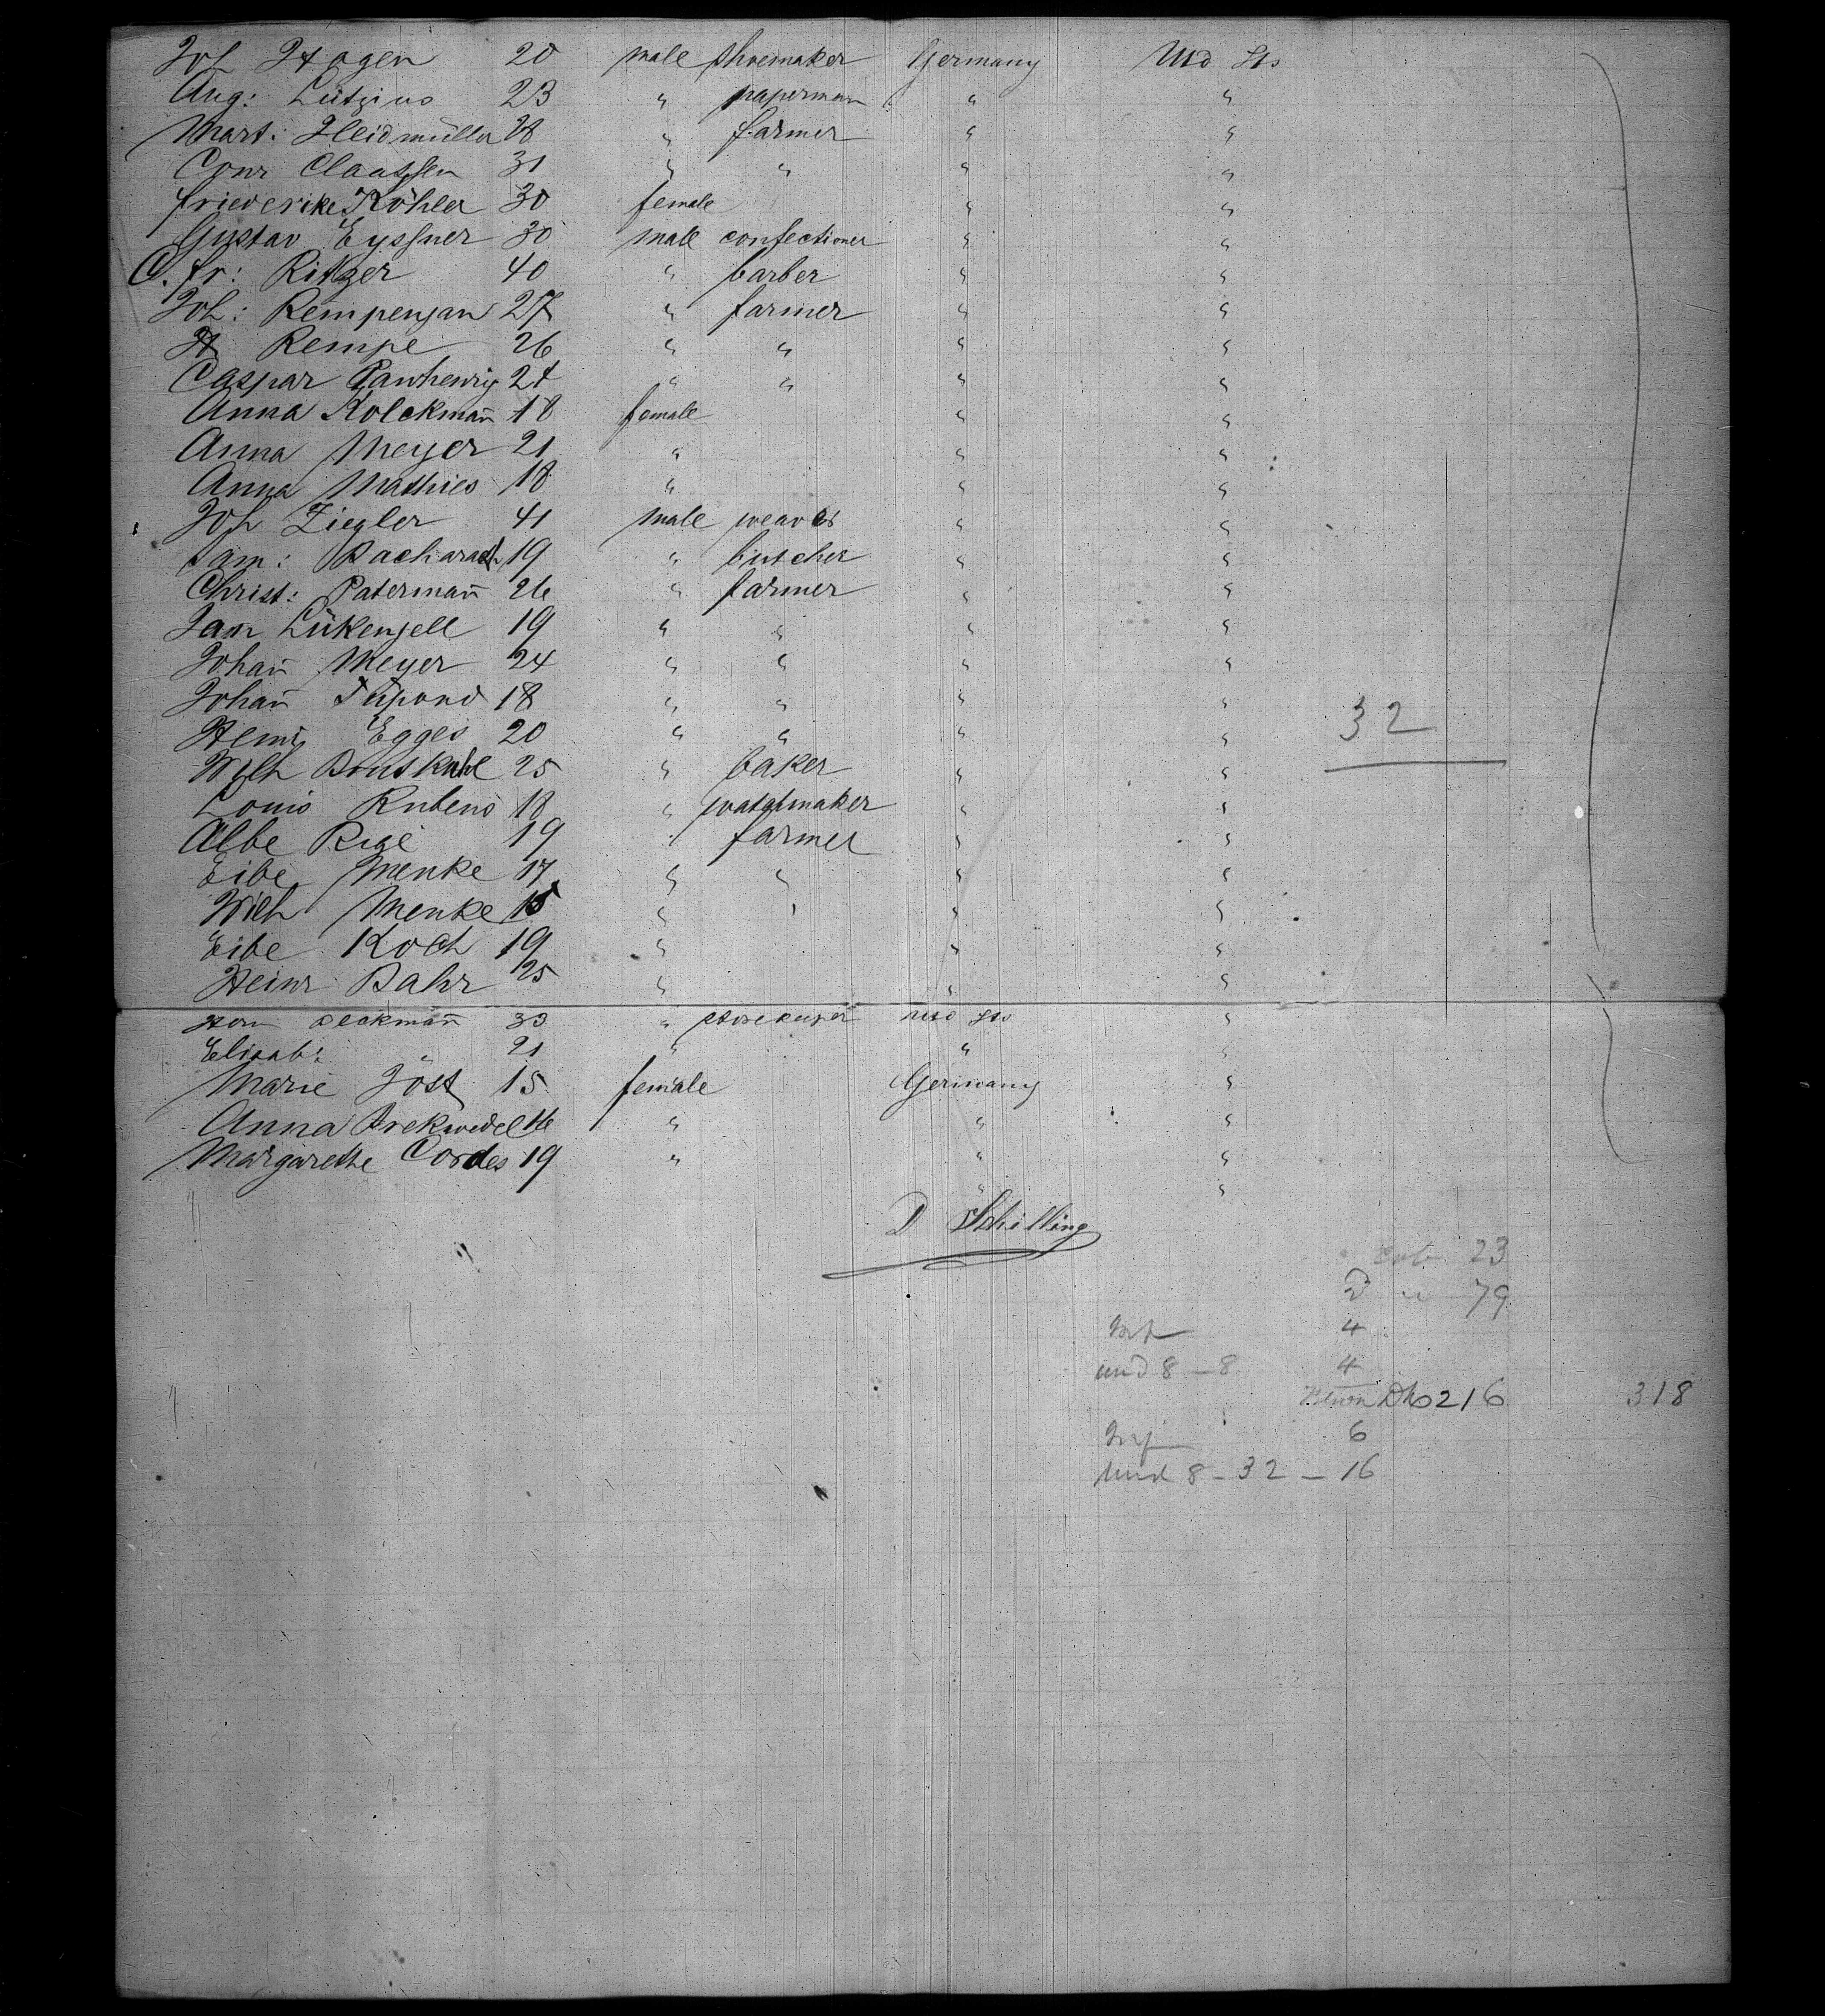 Joh Hagen 20 male shoemaker Germany Utd Sts
Aug: Lützius 23 " paperman " "
Mart: Heidmüller 28 " farmer " "
Conr Claassen 31 " " " "
Friederike Köhler 30 female " "
Gustav Eyssner 30 male confectioner " "
C. Fr: Ritzer 40 " barber " "
Joh: Rempenjan 27 " farmer " "
H Rempe 26 " " " "
Caspar 24 " " " "
Anna Kolckman̄ 18 female " "
Anna Meyer 21 " " "
Anna Mathies 18 " " "
Joh Ziegler 41 male weaver " "
Sam: Bacharach 19 " butcher " "
Christ: Paterman̄ 26 " farmer " "
Jan Lükenjell 19 " " " "
Johan̄ Meyer 24 " " " "
Johan̄ 18 " " " "
Henry Egges 20 " " " " 32
Wilh 25 " baker " "
Louis Rubens 18 " watchmaker " "
Albe Rige 19 " farmer " "
Eibe Menke 17 " " " "
Wilh Menke 15 " " " "
Eibe Koch 19 " " "
Heinr Bahr 25 " " "
Herm Beckman̄ 33 " storekeeper Utd Sts "
Elisab: " 21 " " "
Marie Jost 15 female Germany "
Anna Brekwedel 16 " " "
Margarethe Cordes 19 " " "
" "
D Schilling
23
2 " 79
Inf 4
und 8 - 8 4
216 318
Inf 6
und 8 - 32 - 16